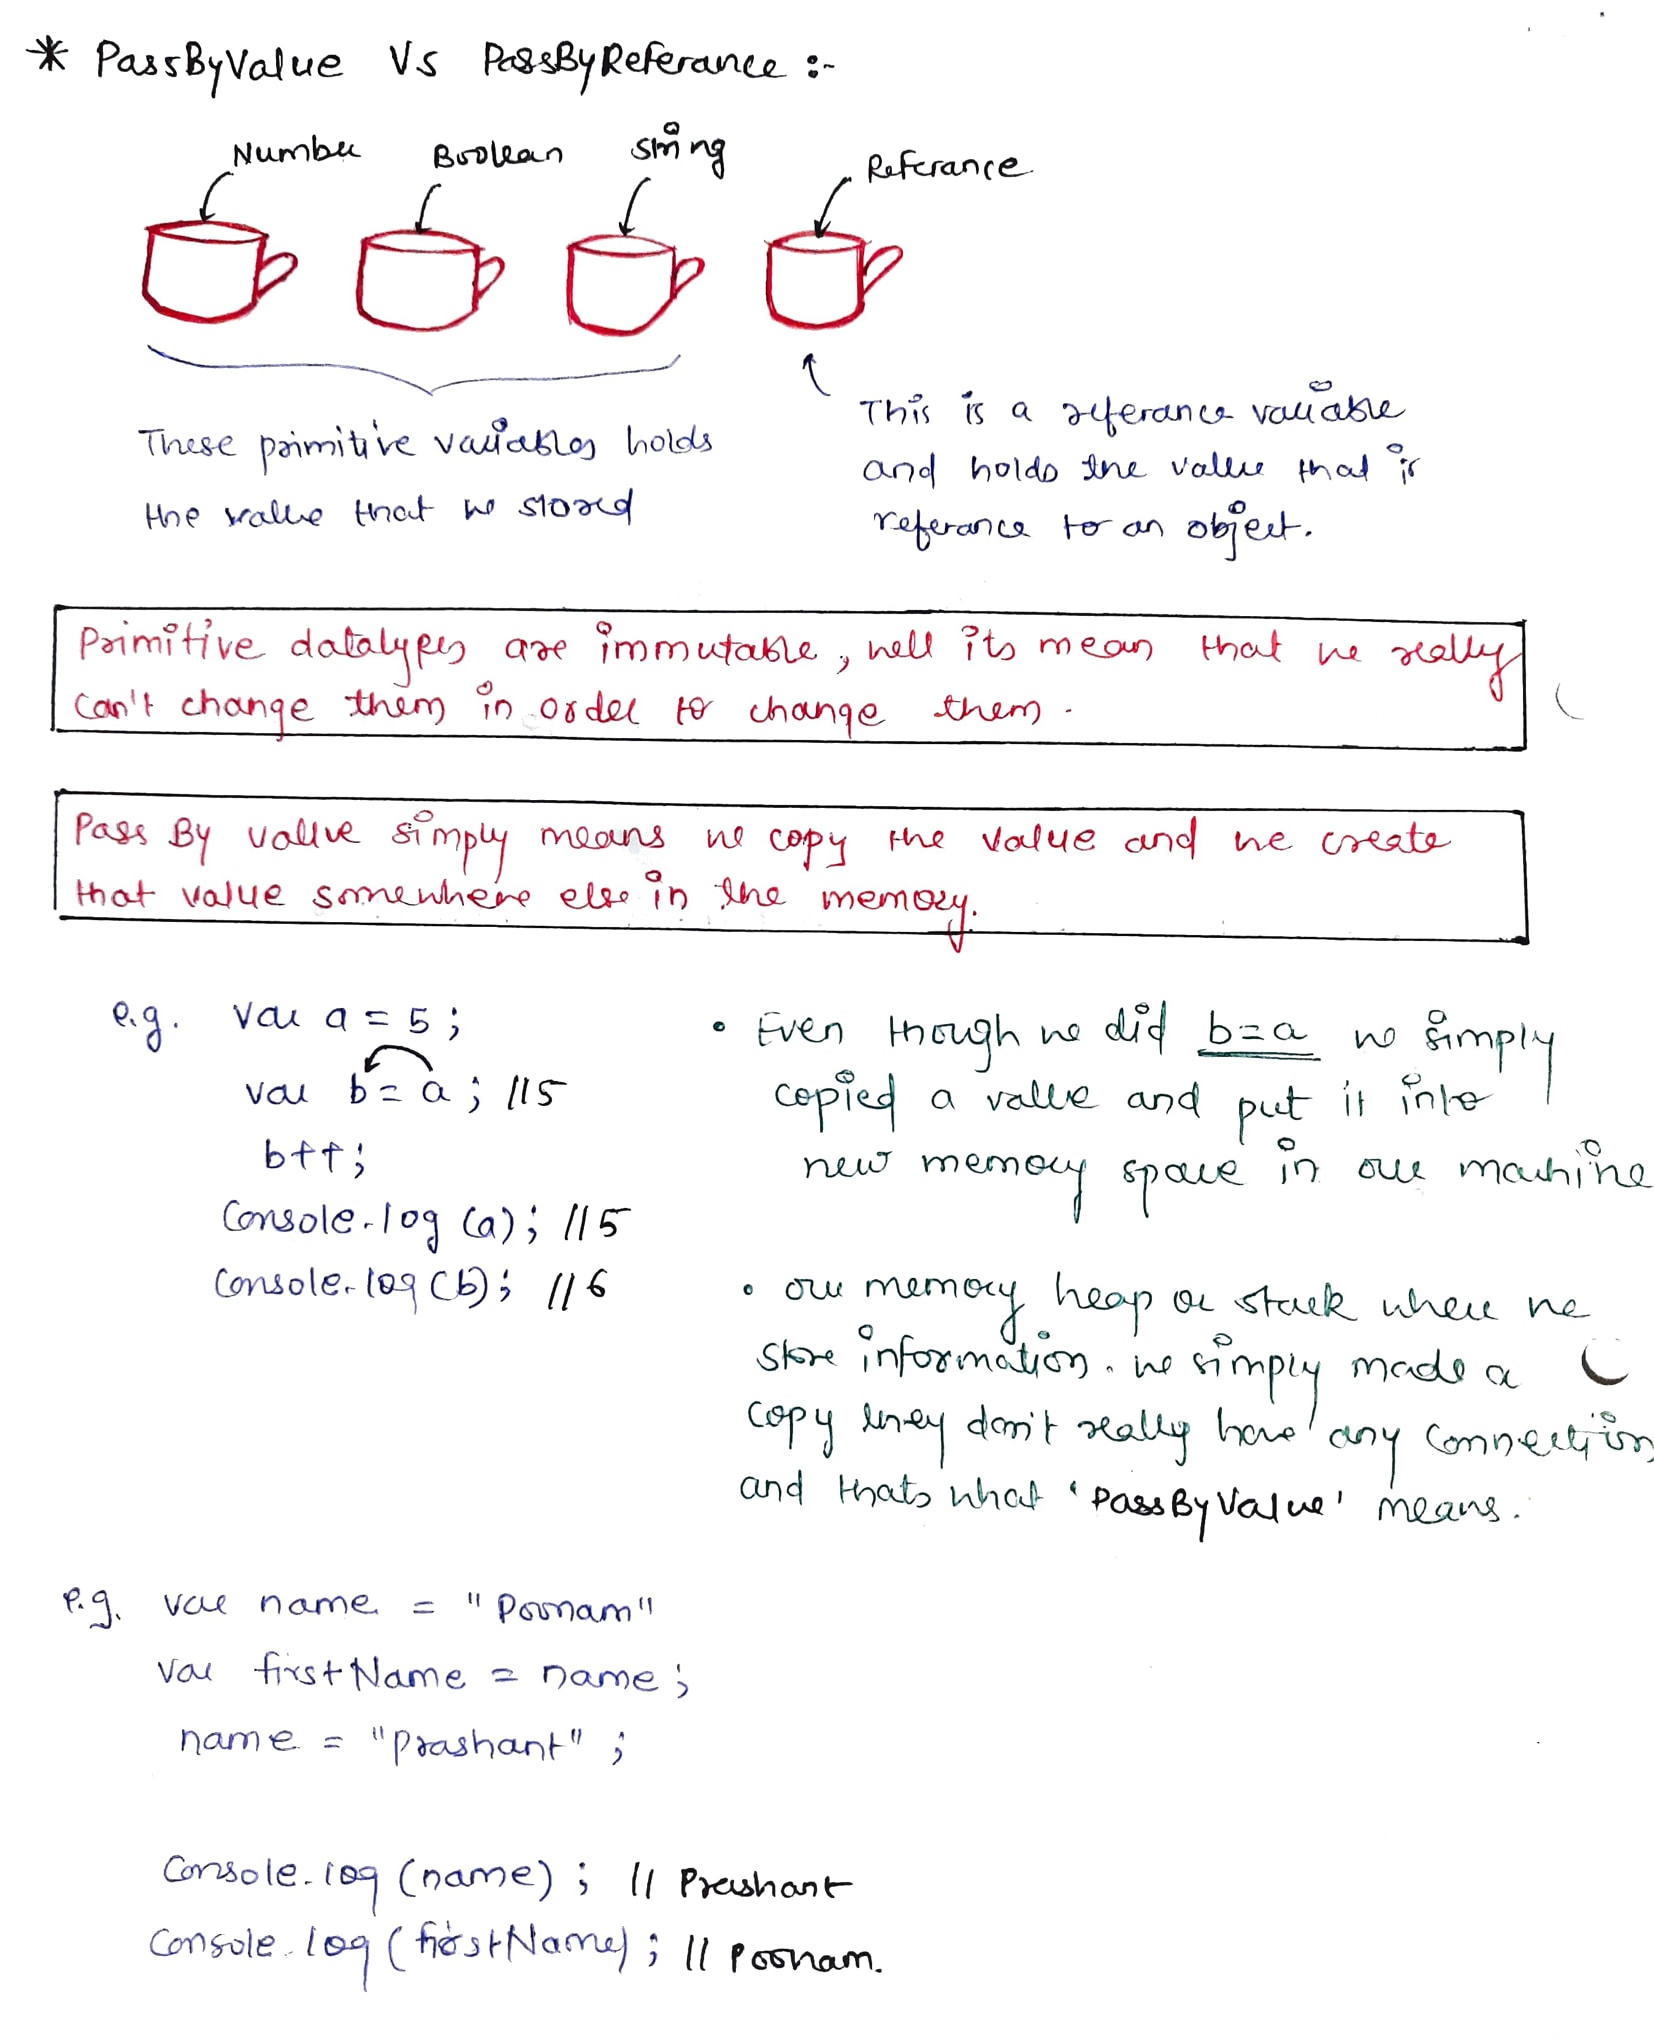 * PassByValue Vs PassByReferance :-
Number Boolean string Referance
These primitive variables holds
the value that we stored
This is a referance variable
and holds the value that is
referance to an object.
Primitive datatypes are immutable, well its mean that we really
can't change them in order to change them.
Pass By vallve simply means we copy the value and we create
that value somewhere else in the memory.
e.g. var a = 5 ;
var b = a ; //5
b++;
Console.log (a) ; //5
Console.log (b) ; //6
• Even though we did b=a we simply
copied a value and put it into
new memory space in our machine
• our memory heap or stack where we
store information. we simply made a
copy they don't really have any connection
and thats what 'PassByValue' means.
e.g. var name = "Poonam"
var firstName = name ;
name = "Prashant" ;
Console.log (name) ; // Prashant
Console.log (firstName) ; // Poonam.